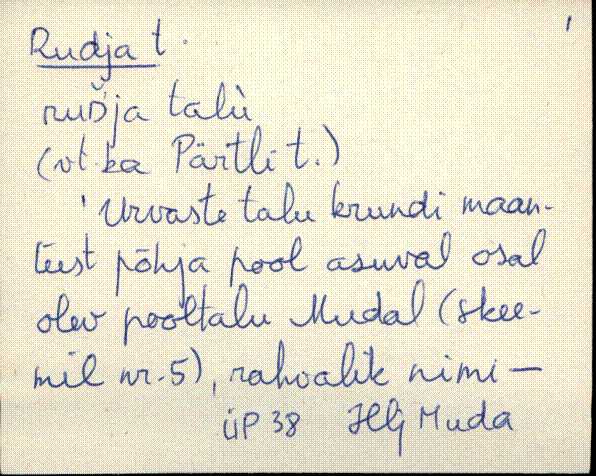 Rudja t. 1
ruďja talù
(vt. ka Pärtli t.)
'Urvaste talu krundi maan-
teest põhja pool asuval osal
olev pooltalu Mudal (skee-
mil nr. 5), rahvalik nimi —
ÜP 38 HLj Muda